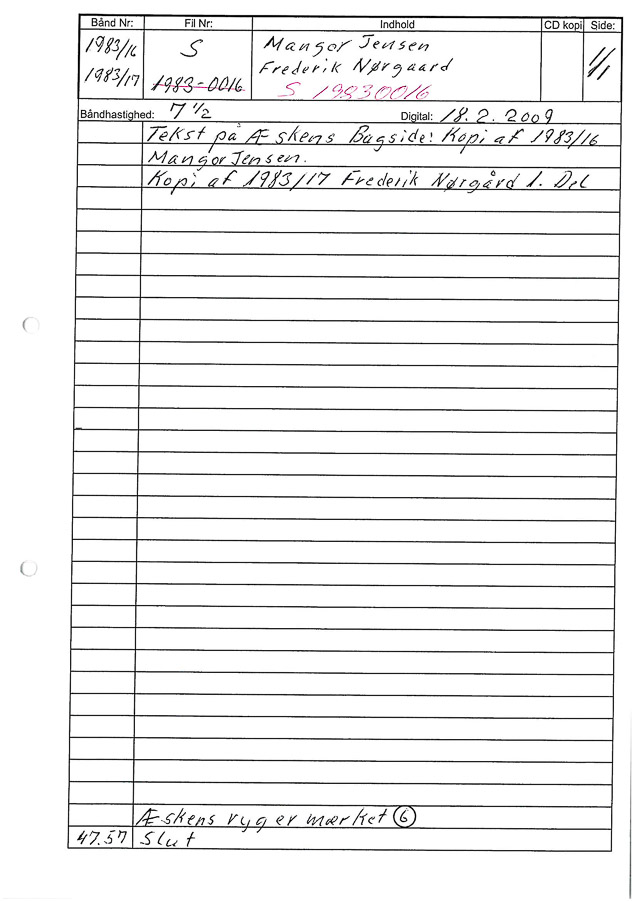 Bånd Nr: Fil Nr: Indhold CD kopi Side:
1983/16 S Mangor Jensen 1/1
1983/17 1983-0016 Frederik Nørgaard
S 19830016
Båndhastighed: 7 1/2 Digital: 18.2.2009
Tekst på Æskens Bagside: Kopi af 1983/16
Mangor Jensen.
Kopi af 1983/17 Frederik Nørgård 1. Del
Æskens ryg er mærket 6
47.57 Slut